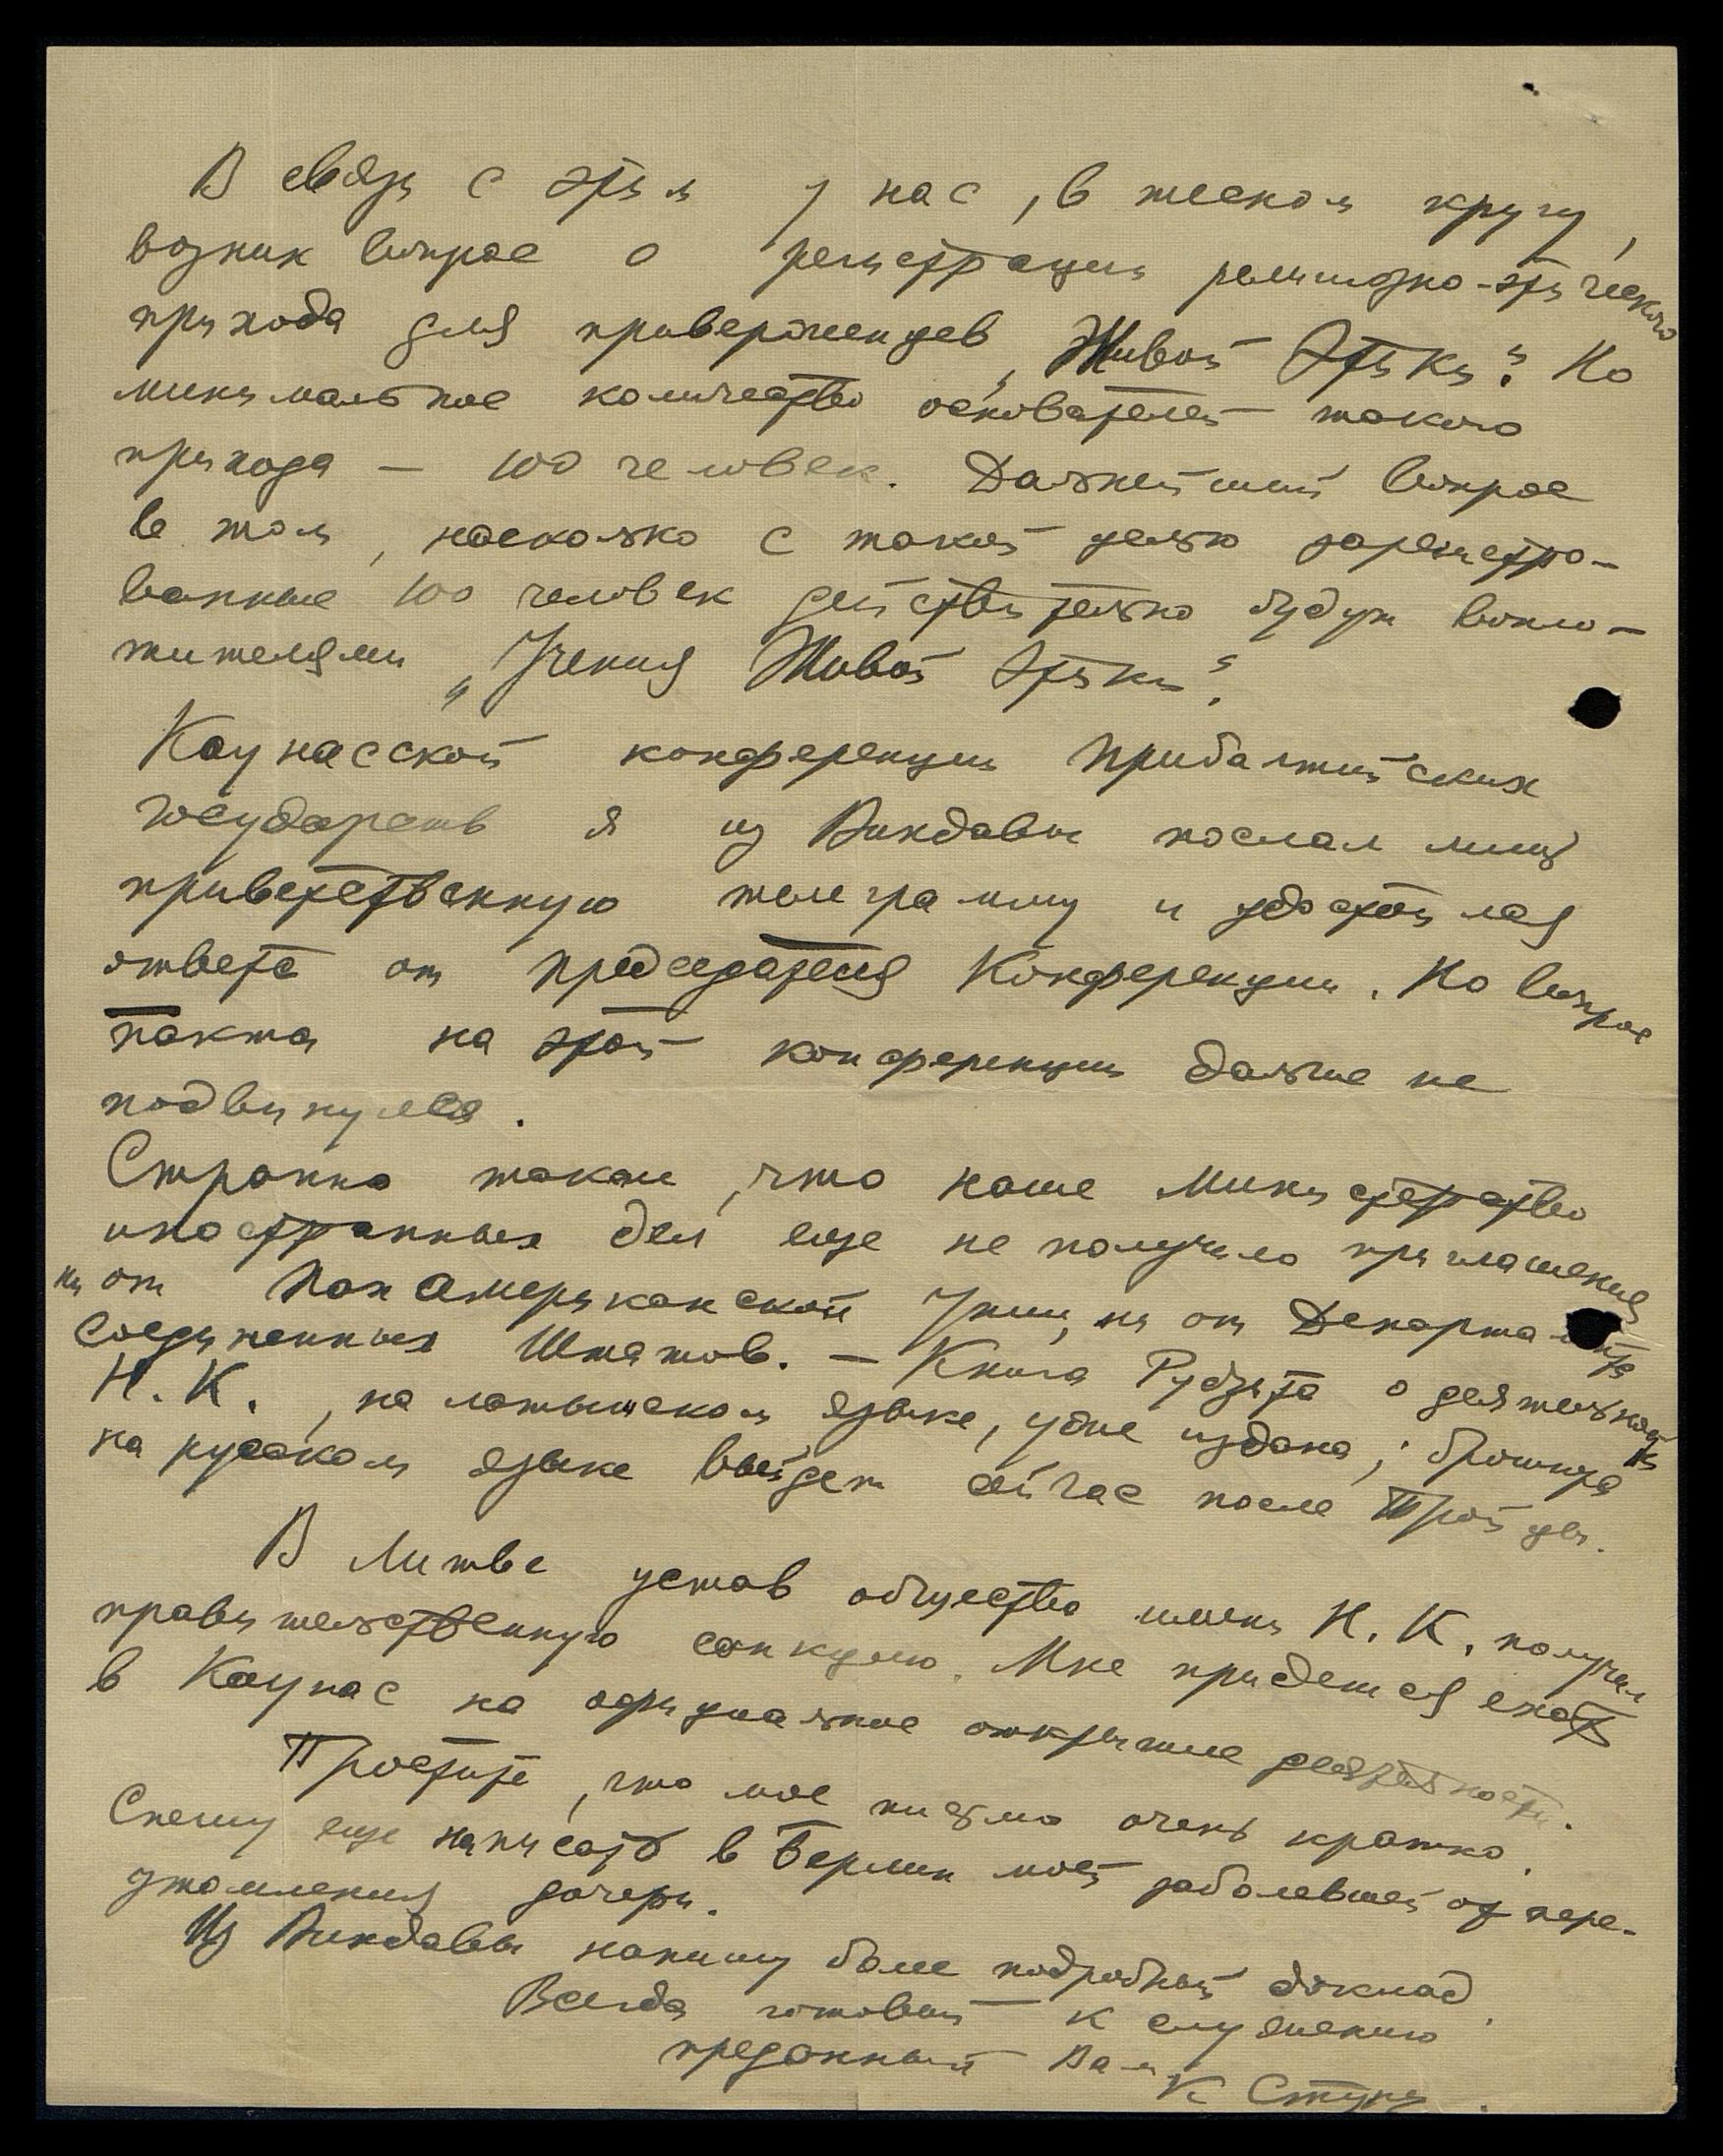 В связи с этим у нас, в тесном кругу,
возник вопрос о регистрации религиозно-этического
прихода для приверженцев „Живой Этики". Но
минимальное количество основателей такого
прихода — 100 человек. Дальнейший вопрос
в том, насколько с такой целью зарегистро-
ванные 100 человек действительно будут вопло-
тителями „Учения Живой Этики".
Каунасской конференции Прибалтийских
государств я из Виндавы послал лишь
приветственную телеграмму и удостоился
ответа от председателя Конференции. Но вопрос
пакта на этой конференции дальше не
подвинулся.
Странно также, что наше Министерство
иностранных дел еще не получило приглашения
ни от Пан Американской Унии, ни от Департамента
Соединенных Штатов. — Книга Рудзита о деятельности
Н. К., на латышском языке, уже издана; брошюра
на русском языке выйдет сейчас после Троицы.
В Литве устав общества имени Н. К. получил
правительственную санкцию. Мне придется ехать
в Каунас на официальное открытие деятельности.
Простите, что мое письмо очень кратко.
Спешу еще написать в Берлин моей заболевшей от пере-
утомления дочери.
Из Виндавы напишу более подробный доклад.
Всегда готовый к служению
преданный Вам
К Стурэ.